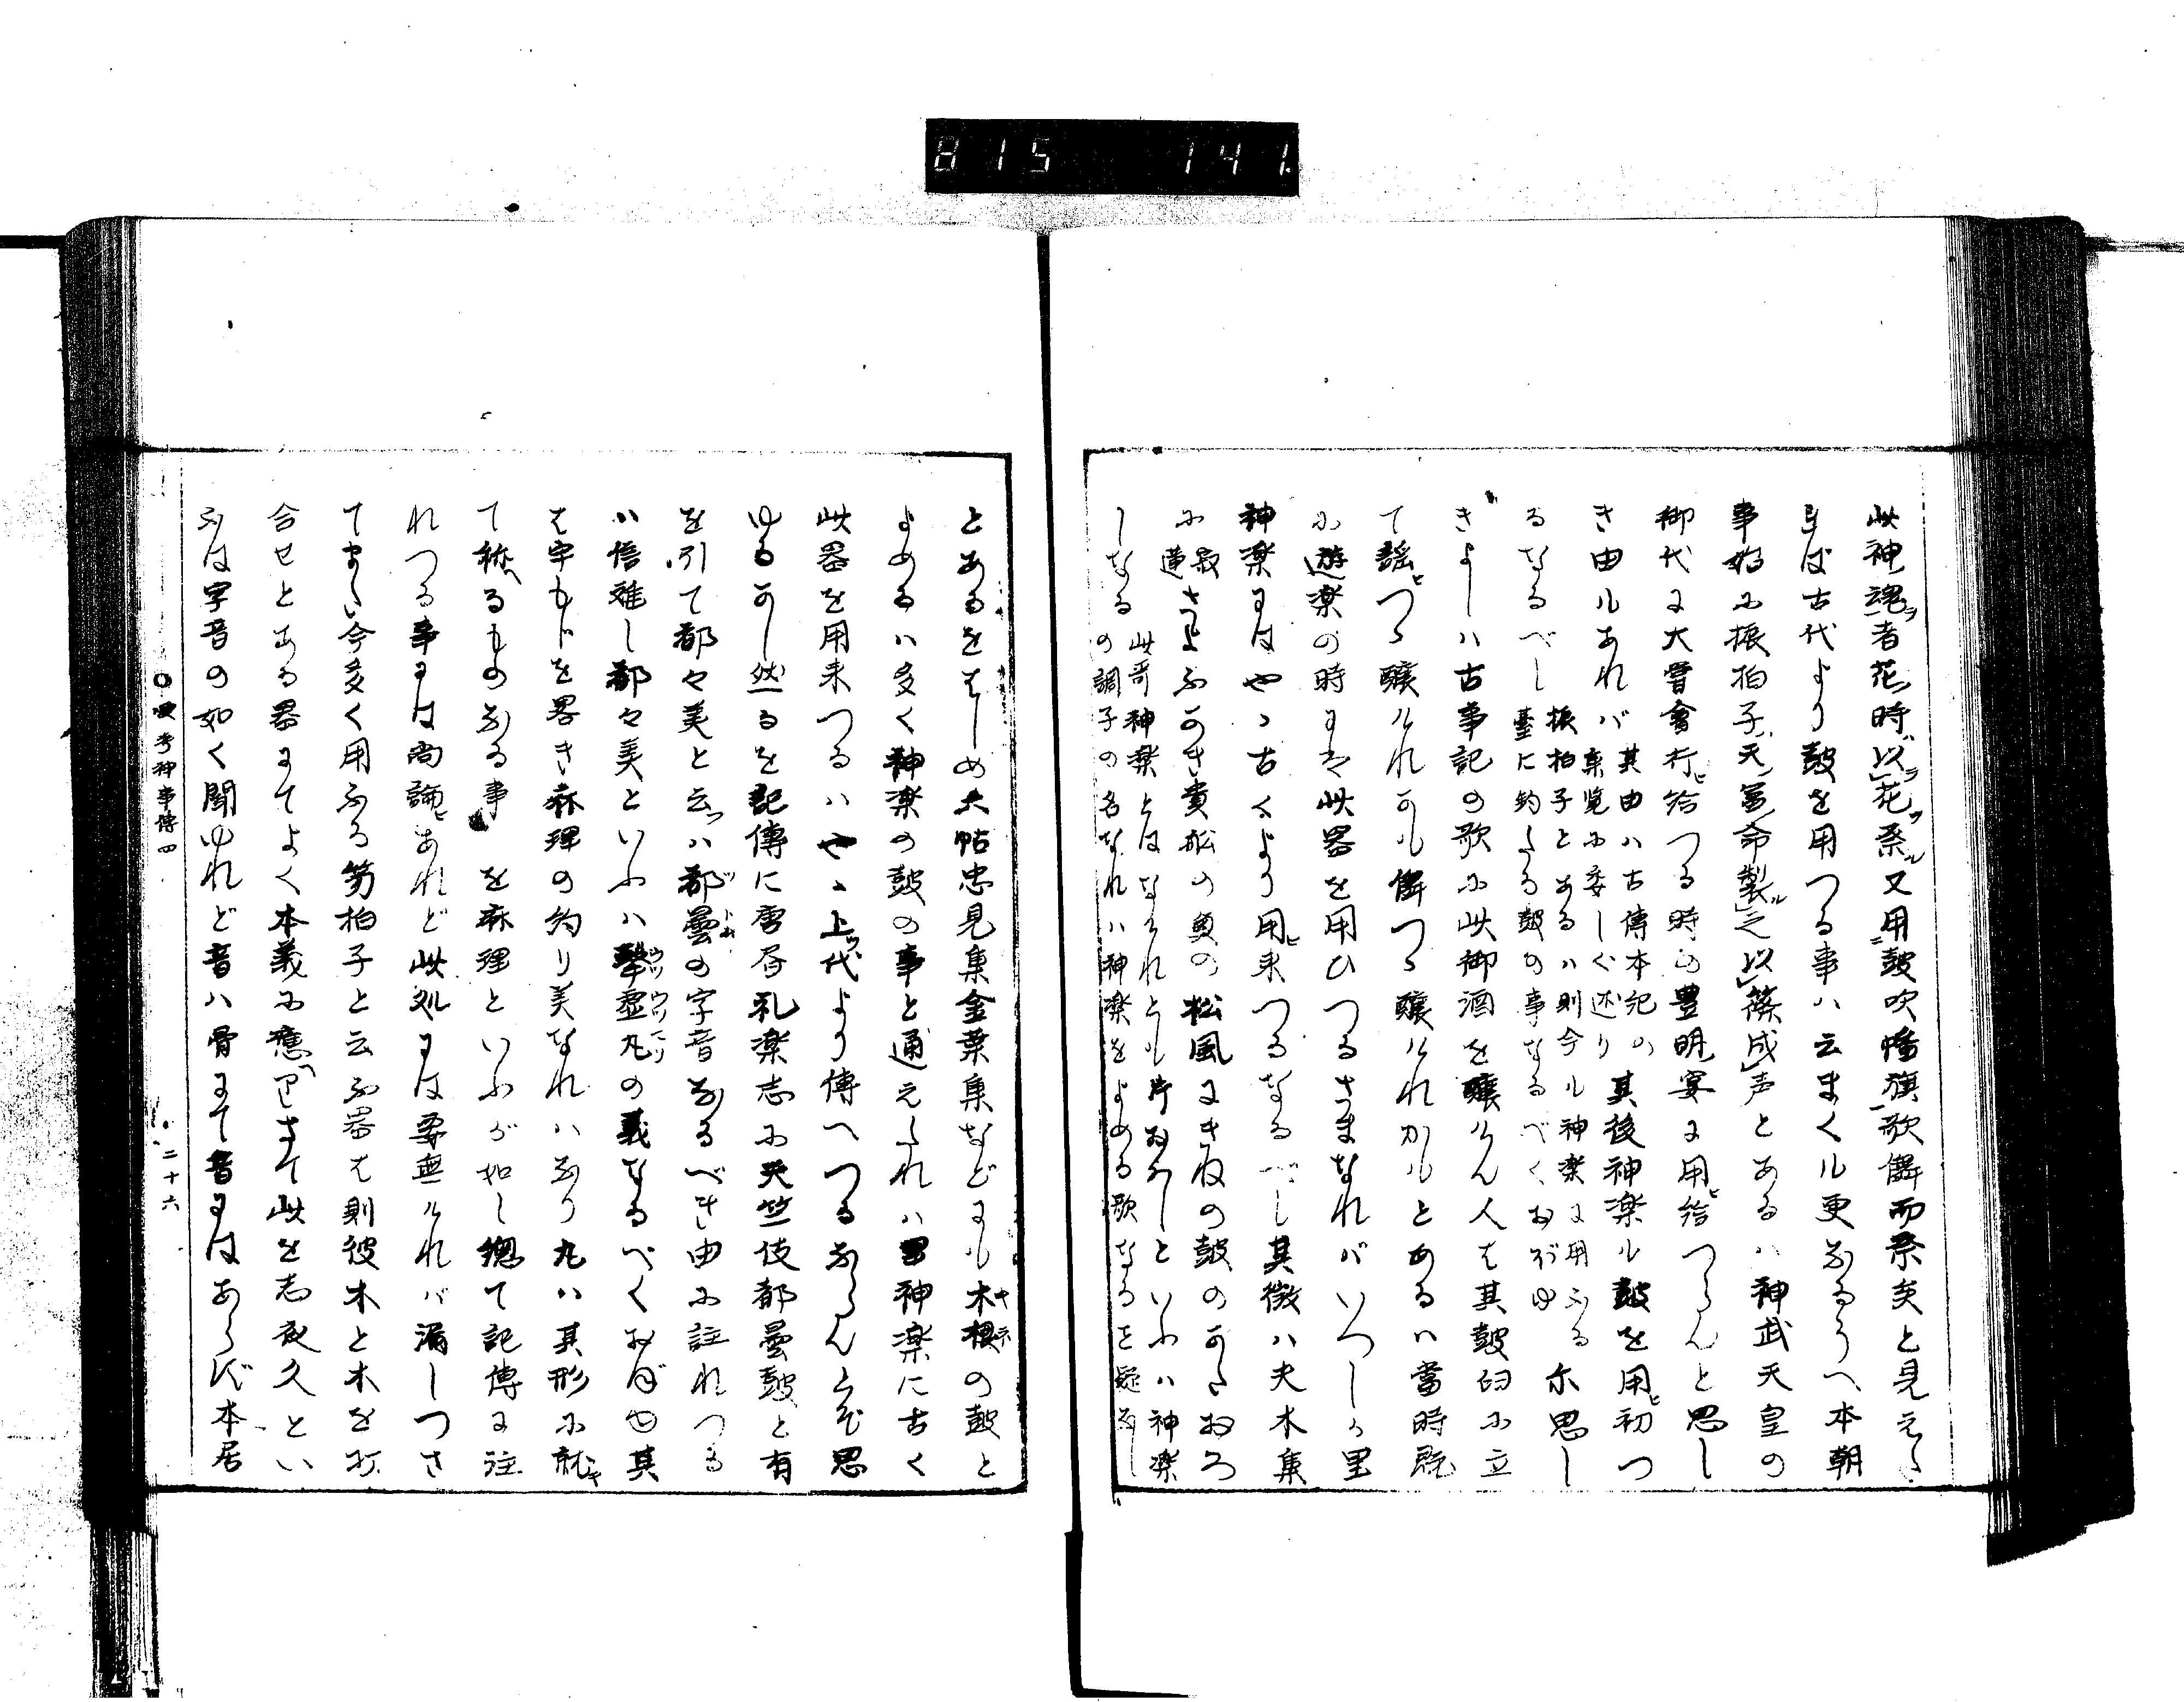 815 141.
此神魂者花時以花祭又用鼓吹幡旗歌儛而祭矣と見えた
れば古代より鼓を用つる事ハ云まくも更なるうへ本朝
事始に振拍子天冨命製之以篠成声とあるハ神武天皇の
御代に大嘗會行ヒ給つる時の豊明宴に用ヒ給つらんと思し
き由もあれバ其由ハ古傳本紀の
其後神楽も鼓を用ヒ初つ
るなるべし振拍子とあるハ則今も神楽に用ふる
尓思し
きよしハ古事記の歌に此御酒を醸けん人は其鼓臼に立
て謡ヒつゝ醸けれかも儛つゝ醸けれかもとあるハ當時既
に遊楽の時には此器を用ひつるさまなれバいつしか里
神楽にはやゝ古くより用ヒ来つるなるべし其徴ハ夫木集
に寂蓮さよふかき貴船の奥の松風にきねの鼓のかたおろ
しなる此哥神楽とはなけれとも片おろしといふハ神楽
の調子の名なれハ神楽をよめる歌なること疑なし
とあるをはしめ大帖忠見集金葉集などにも木根の鼓と
よめるハ多く神楽の鼓の事と通えたれハ里神楽に古く
此器を用来つるハやゝ上ツ代より傳へつるならんとぞ思
ゆるかし然るを記傳に唐昏礼楽志に天竺伎都曇鼓と有
を引て都々美と云ハ都曇の字音なるべき由に註れつる
ハ信難し都々美といふハ撃虚丸の義なるべくおぼゆ其
は宇もじを畧き麻理の約り美なれハなり丸ハ其形に就キ
て称へるものなる事を麻理といふが如し總て記傳に注
れつる事には尚論ヒあれど此処には要無けれバ漏しつさ
てまた今多く用ふる笏拍子と云ふ器は則彼木と木を打
合せとある器にてよく本義に應へりさて此を志夜久とい
ふは字音の如く聞ゆれど音ハ骨にて音にはあらバ本居
○喚考神事傳四
二十六